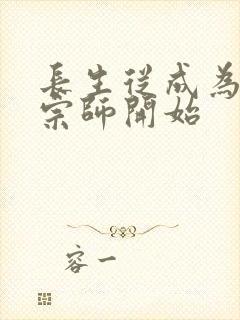 長生從成為
宗師開始
容一